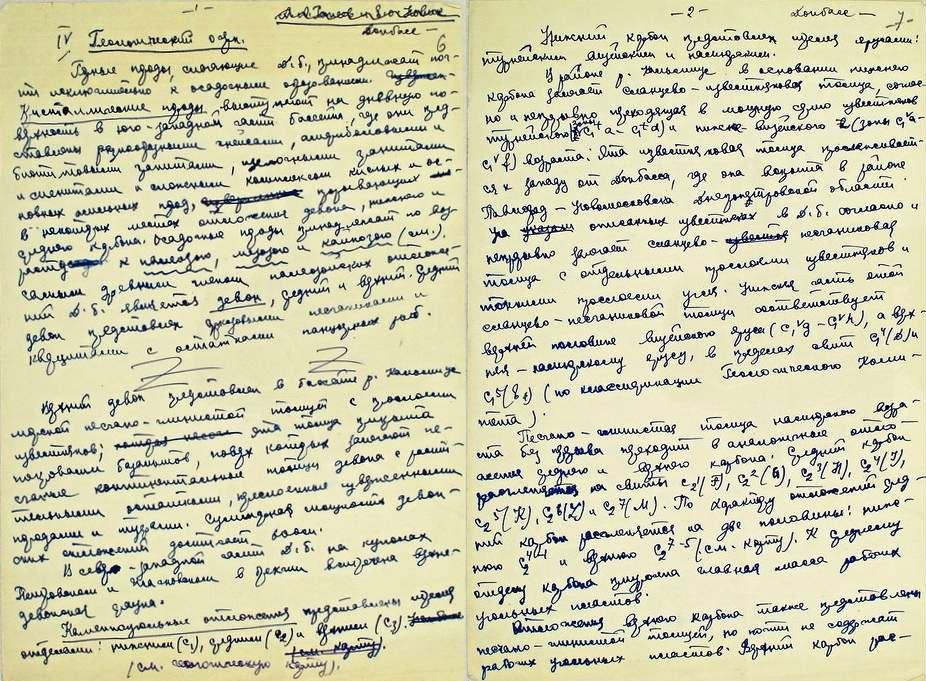 -1-
Донбасс -
6
IV Геологический очерк.
Горные породы, слагающие Д.б., принадлежат поч-
ти исключительно к осадочным образованиям.
Кристаллические породы выступают на дневную по-
верхность в юго-западной части бассейна, где они пред-
ставлены разнообразными гнейсами, амфиболовыми и
биотитовыми гранитами, щелочными гранитами
и сиенитами и сложным комплексом кислых и ос-
новных жильных пород, прорывающих
в некоторых местах отложения девона, нижнего и
среднего карбона. Осадочные породы принадлежат по воз-
расту к палеозою, мезозою и кайнозою (см.).
Самым древним членом палеозойских отложе-
ний Д.б. является девон, средний и верхний. Средний
девон представлен аркозовыми песчаниками и
кварцитами с остатками панцырных рыб.
Верхний девон представлен в бассейне р. Кальмиус
морской песчано-глинистой толщей с прослоями
известняков; эта толща прикрыта
покровами базальтов, поверх которых залегают пе-
счаные континентальные толщи девона с расти-
тельными остатками, переслоенные изверженными
породами и туфами. Суммарная мощность девон-
ских отложений достигает
В северо-западной части Д.б. на куполах
Петровском и в брекчии встречена верхне-
девонская фауна.
Каменноугольные отложения представлены тремя
отделами: нижним (C1), средним (C2) и верхним (C3).
(см. карту).
(см. геологическую карту).
-2- Донбасс - 7
Нижний карбон представлен тремя ярусами:
турнейским визейским и намюрским.
В районе р. Кальмиус в основании нижнего
карбона залегает сланцево-известняковая толща, соглас-
но и непрерывно переходящая в мощную серию известняков
турнейского (зоны C1ta - C1td) и нижне-визейского (зоны C1va-
C1vf) возраста. Эта известняковая толща прослеживает-
ся к западу от Донбасса, где она вскрыта в районе
Павлоград - Новомосковска Днепропетровской области.
На описанных известняках в Д.б. согласно и
непрерывно залегает сланцево-песчаниковая
толща с отдельными прослоями известняков и
тонкими прослоями угля. Нижняя часть этой
сланцево-песчаниковой толщи соответствует
верхней половине визейского яруса (C1vg - C1vh), а верх-
няя - намюрскому ярусу, в пределах свит C1^4 (D) и
C1^5 (E) (по классификации Геологического Коми-
тета).
Песчано-глинистая толща намюрского возра-
ста без перерыва переходит в аналогичные отло-
жения среднего и верхнего карбона. Средний карбон
расчленяется на свиты C2^1(F), C2^2(G), C2^3(H), C2^4(I),
C2^5(K), C2^6(L) и C2^7(M). По характеру отложений сред-
ний карбон расчленяется на две половины: ниж-
нюю C2^4-1 и верхнюю C2^7-5 (см. карту). К среднему
отделу карбона приурочена главная масса рабочих
угольных пластов.
Отложения верхнего карбона также представлены
песчано-глинистой толщей, но почти не содержат
рабочих угольных пластов. Верхний карбон рас-